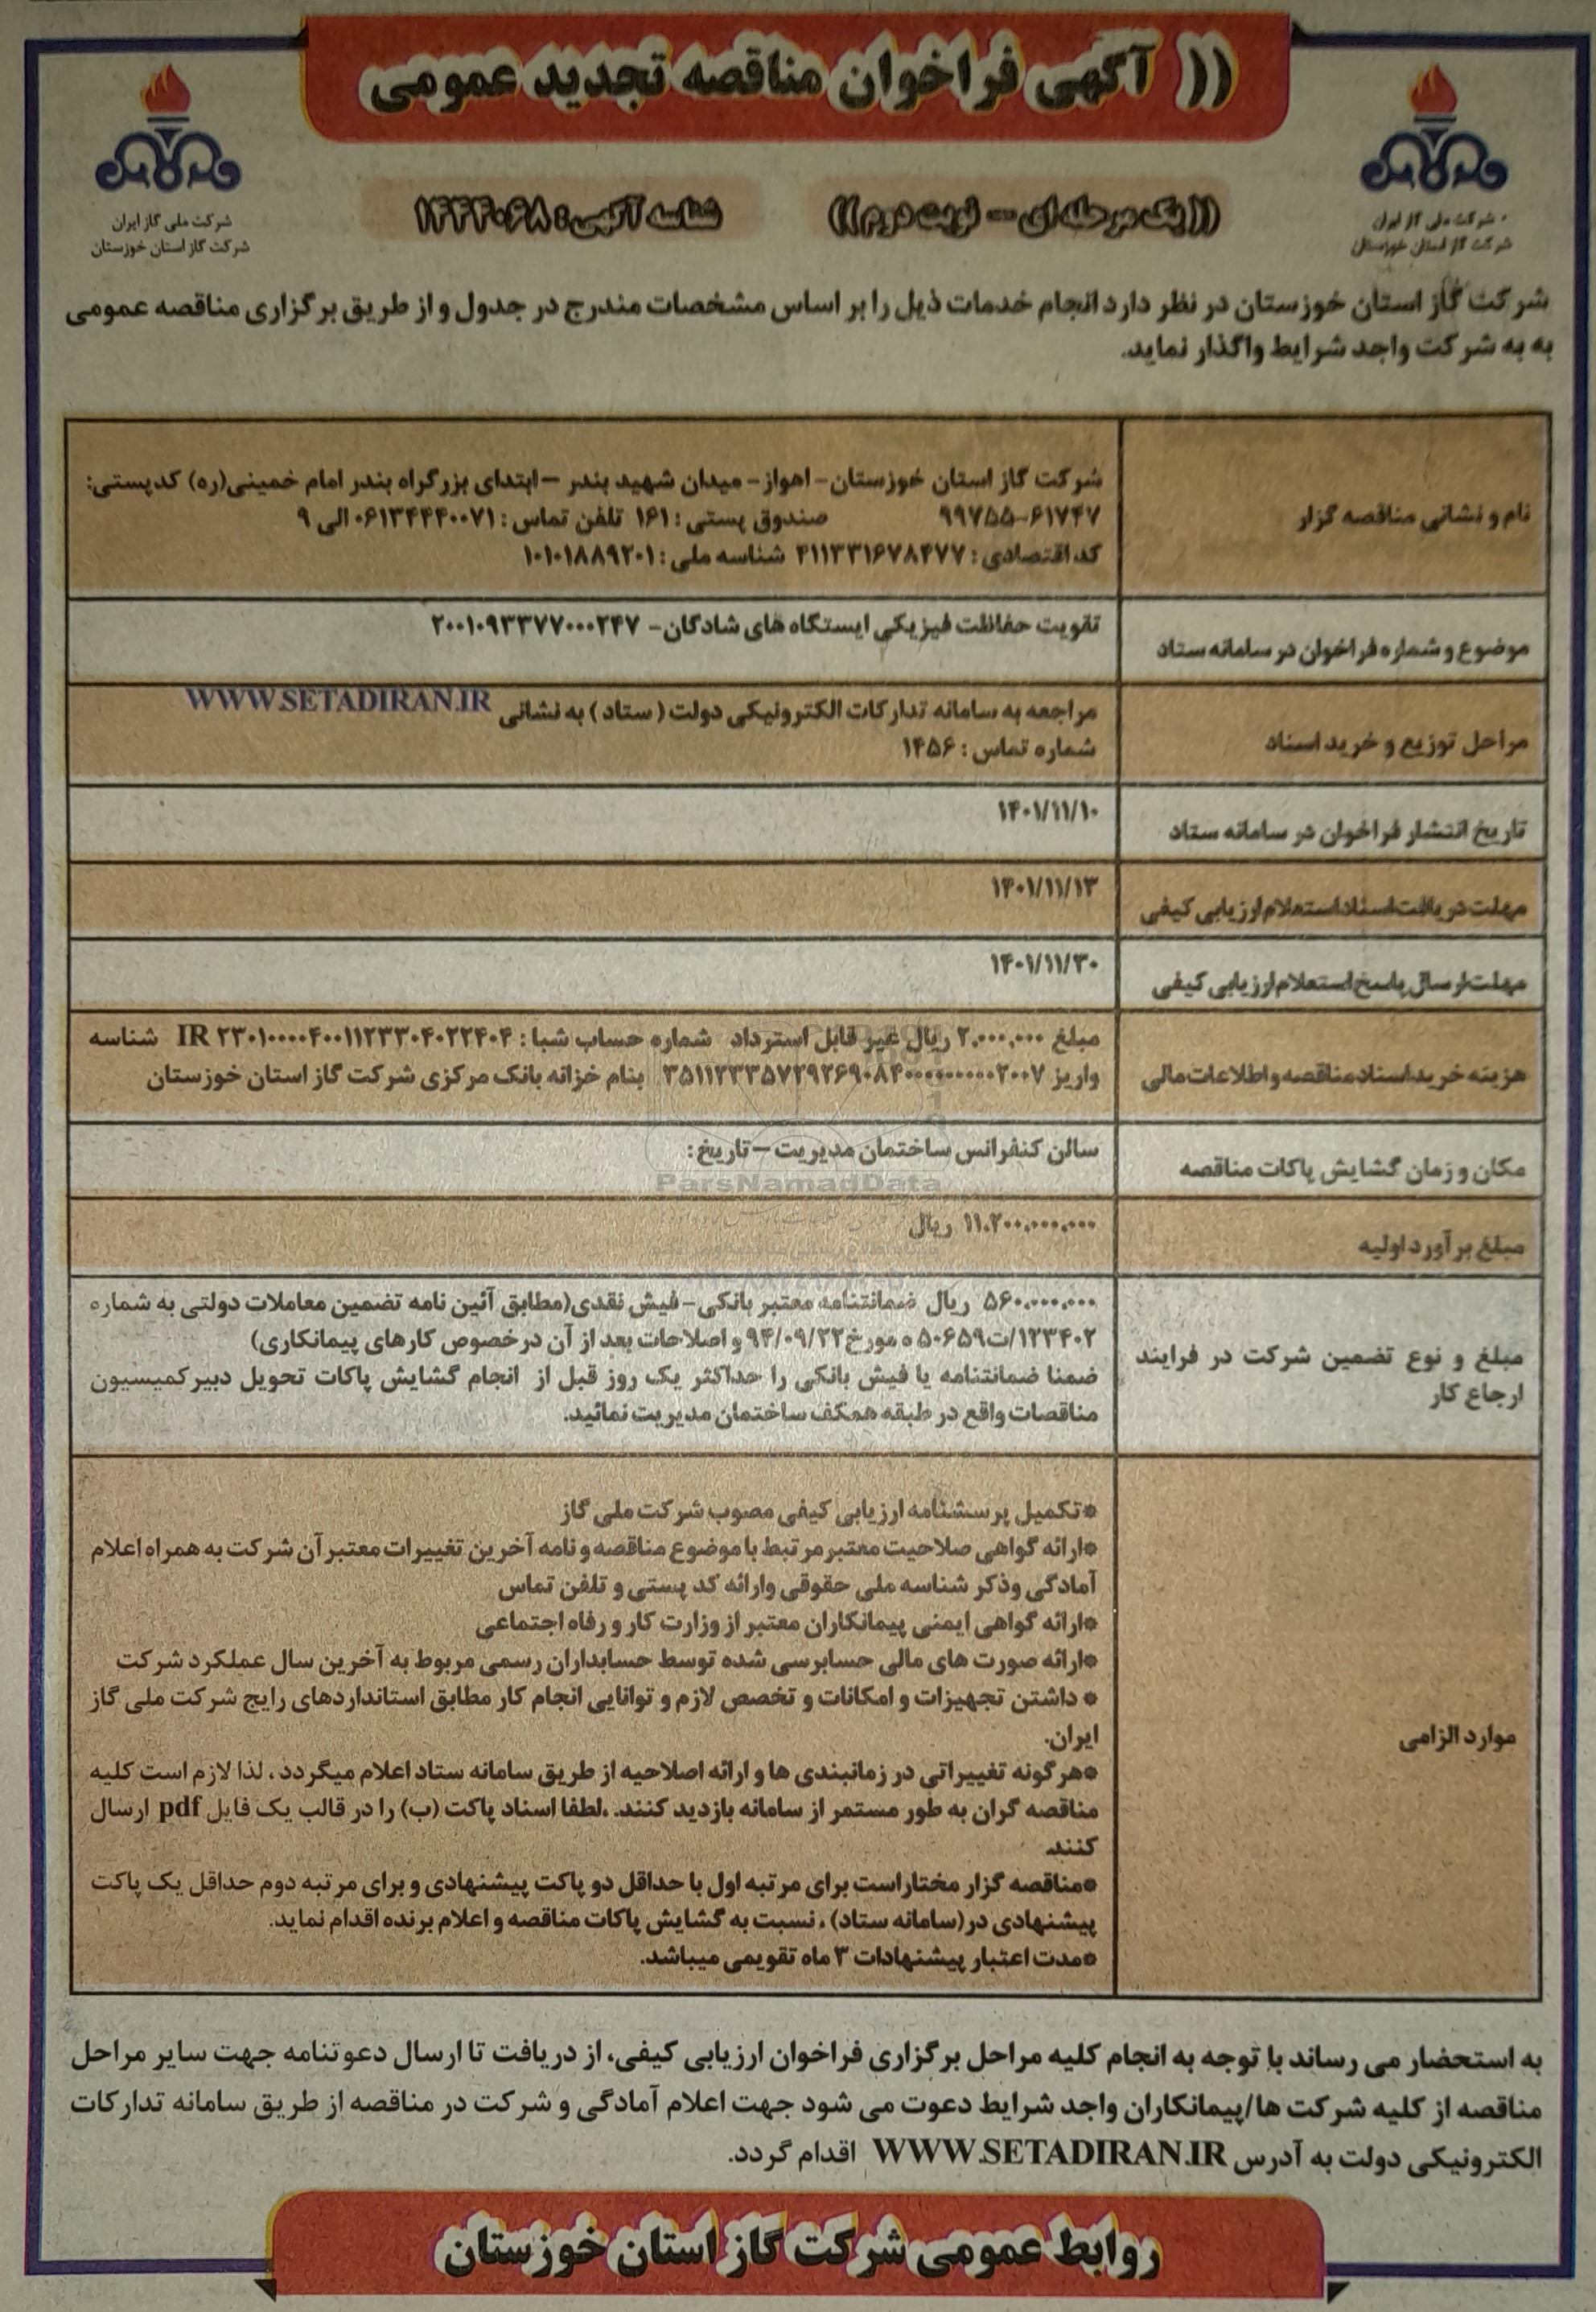 (( آگهی فراخوان مناقصه تجدید عمومی
شرکت ملی گاز ایران
شرکت گاز استان خوزستان
((یک مرحله ای -- نوبت دوم))
شناسه آگهی: ۱۴۴۴۰۶۸
شرکت ملی گاز ایران
شرکت گاز استان خوزستان
شرکت گاز استان خوزستان در نظر دارد انجام خدمات ذیل را بر اساس مشخصات مندرج در جدول و از طریق برگزاری مناقصه عمومی
به به شرکت واجد شرایط واگذار نماید.
نام و نشانی مناقصه گزار
شرکت گاز استان خوزستان- اهواز- میدان شهید بندر –ابتدای بزرگراه بندر امام خمینی(ره) کدپستی:
۶۱۷۴۷-۹۹۷۵۵ صندوق پستی : ۱۶۱ تلفن تماس : ۰۶۱۳۴۴۴۰۰۷۱ الی ۹
کد اقتصادی : ۴۱۱۳۳۱۶۷۸۴۷۷ شناسه ملی : ۱۰۱۰۱۸۸۹۲۰۱
موضوع و شماره فراخوان در سامانه ستاد
تقویت حفاظت فیزیکی ایستگاه های شادگان- ۲۰۰۱۰۹۳۳۷۷۰۰۰۲۴۷
مراحل توزیع و خرید اسناد
مراجعه به سامانه تدارکات الکترونیکی دولت ( ستاد ) به نشانی WWW.SETADIRAN.IR
شماره تماس : ۱۴۵۶
تاریخ انتشار فراخوان در سامانه ستاد
۱۴۰۱/۱۱/۱۰
مهلت دریافت اسناد استعلام ارزیابی کیفی
۱۴۰۱/۱۱/۱۳
مهلت ارسال پاسخ استعلام ارزیابی کیفی
۱۴۰۱/۱۱/۳۰
هزینه خرید اسناد مناقصه و اطلاعات مالی
مبلغ ۲،۰۰۰،۰۰۰ ریال غیر قابل استرداد شماره حساب شبا : IR ۲۳۰۱۰۰۰۰۴۰۰۱۱۲۳۳۰۴۰۲۲۴۰۴ شناسه
واریز بنام خزانه بانک مرکزی شرکت گاز استان خوزستان
مکان و زمان گشایش پاکات مناقصه
سالن کنفرانس ساختمان مدیریت –تاریخ:
ParsNamadData
مبلغ برآورد اولیه
۱۱،۲۰۰،۰۰۰،۰۰۰ ریال
مبلغ و نوع تضمین شرکت در فرایند
ارجاع کار
۵۶۰،۰۰۰،۰۰۰ ریال ضمانتنامه معتبر بانکی-فیش نقدی(مطابق آئین نامه تضمین معاملات دولتی به شماره
۱۲۳۴۰۲/ت۵۰۶۵۹ ه مورخ۹۴/۰۹/۲۲ و اصلاحات بعد از آن درخصوص کارهای پیمانکاری)
ضمنا ضمانتنامه یا فیش بانکی را حداکثر یک روز قبل از انجام گشایش پاکات تحویل دبیرکمیسیون
مناقصات واقع در طبقه همکف ساختمان مدیریت نمائید.
موارد الزامی
*تکمیل پرسشنامه ارزیابی کیفی مصوب شرکت ملی گاز
*ارائه گواهی صلاحیت معتبر مرتبط با موضوع مناقصه و نامه آخرین تغییرات معتبر آن شرکت به همراه اعلام
آمادگی وذکر شناسه ملی حقوقی وارائه کد پستی و تلفن تماس
*ارائه گواهی ایمنی پیمانکاران معتبر از وزارت کار و رفاه اجتماعی
*ارائه صورت های مالی حسابرسی شده توسط حسابداران رسمی مربوط به آخرین سال عملکرد شرکت
* داشتن تجهیزات و امکانات و تخصص لازم و توانایی انجام کار مطابق استانداردهای رایج شرکت ملی گاز
ایران.
*هرگونه تغییراتی در زمانبندی ها و ارائه اصلاحیه از طریق سامانه ستاد اعلام میگردد ، لذا لازم است کلیه
مناقصه گران به طور مستمر از سامانه بازدید کنند. ،لطفا اسناد پاکت (ب) را در قالب یک فایل pdf ارسال
کنند
*مناقصه گزار مختار است برای مرتبه اول با حداقل دو پاکت پیشنهادی و برای مرتبه دوم حداقل یک پاکت
پیشنهادی در (سامانه ستاد) ، نسبت به گشایش پاکات مناقصه و اعلام برنده اقدام نماید.
*مدت اعتبار پیشنهادات ۳ ماه تقویمی میباشد.
به استحضار می رساند با توجه به انجام کلیه مراحل برگزاری فراخوان ارزیابی کیفی، از دریافت تا ارسال دعوتنامه جهت سایر مراحل
مناقصه از کلیه شرکت ها/پیمانکاران واجد شرایط دعوت می شود جهت اعلام آمادگی و شرکت در مناقصه از طریق سامانه تدارکات
الکترونیکی دولت به آدرس WWW.SETADIRAN.IR اقدام گردد.
روابط عمومی شرکت گاز استان خوزستان